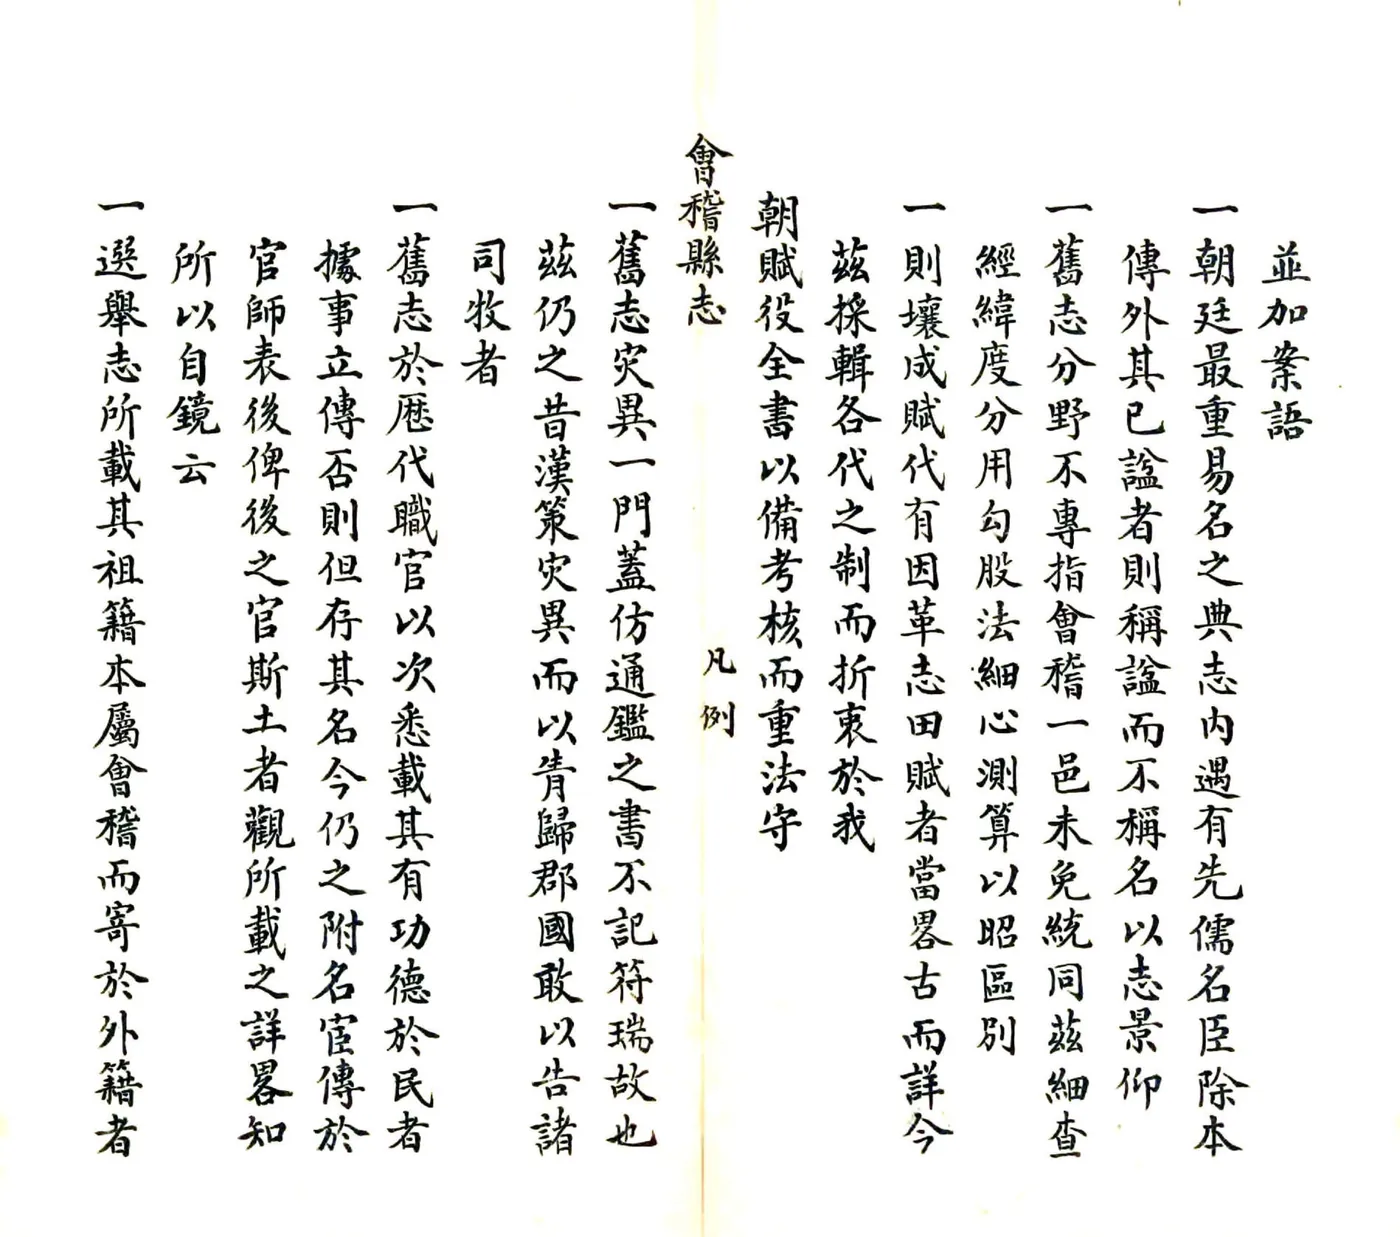 並加案語
一朝廷最重易名之典志内遇有先儒名臣除本
傳外其已諡者則稱諡而不稱名以志景仰
一舊志分野不專指會稽一邑未免統同茲細查
經緯度分用勾股法細心測算以昭區別
一則壤成賦代有因革志田賦者當畧古而詳今
茲採輯各代之制而折衷於我
朝賦役全書以備考核而重法守
會稽縣志
凡例
一舊志灾異一門蓋仿通鑑之書不記符瑞故也
茲仍之昔漢策灾異而以青歸郡國敢以告諸
司牧者
一舊志於歷代職官以次悉載其有功德於民者
據事立傳否則但存其名今仍之附名宦傳於
官師表後俾後之官斯土者觀所載之詳畧知
所以自鏡云
一選舉志所載其祖籍本屬會稽而寄於外籍者